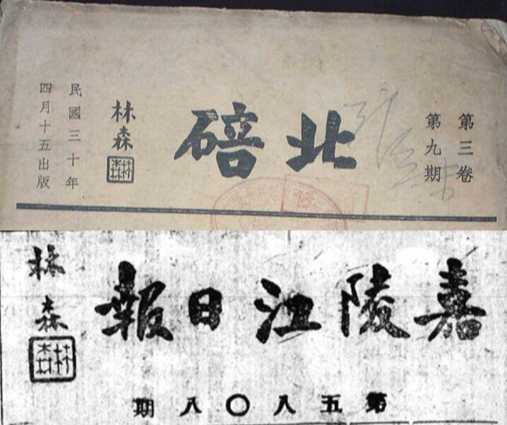 第三卷
第九期
北碚
林森
民國三十年
四月十五出版
嘉陵江日報
林森
第五八〇八期